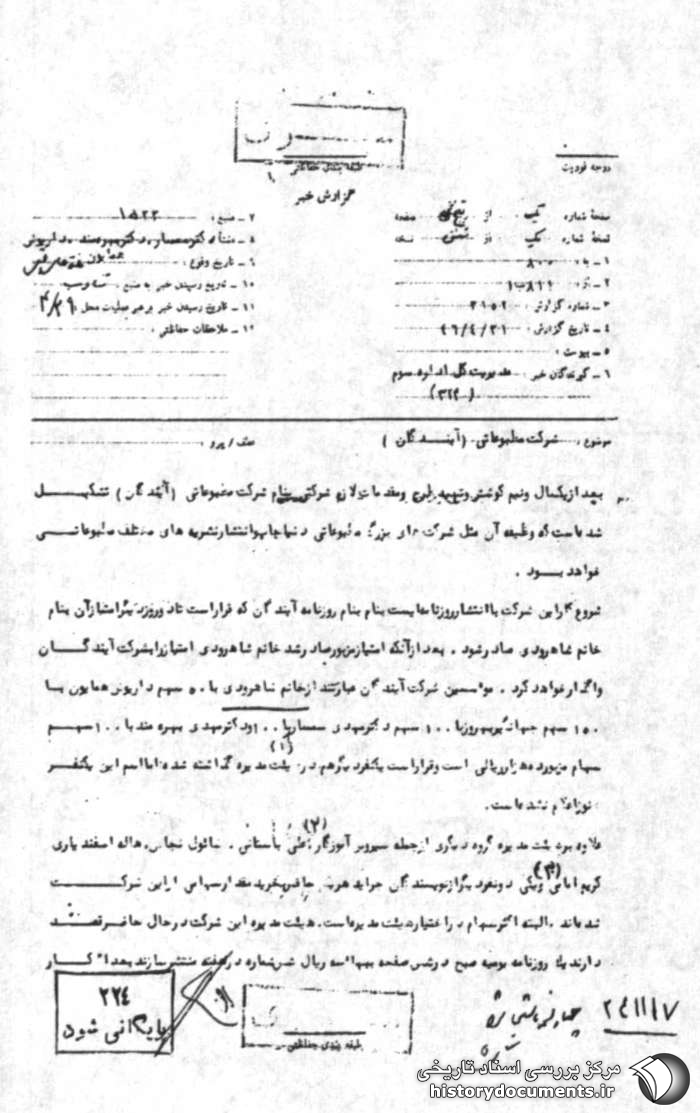 طبقه بندی حفاظتی
گزارش خبر
درجه فوریت
صفحه شماره یک از صفحه
نسخه شماره یک از نسخه
۱ - به: ۸۰۰
۲ - از:
۳ - شماره گزارش: ۲۱۵۲
۴ - تاریخ گزارش: ۴۶/۴/۳۱
۵ - پیوست:
۶ - گیرندگان خبر: مدیریت کل اداره سوم
(۳۲۲)
۷ - منبع: ۱۵۲۲
۸ - منشأ: دکتر سمسار، دکتر بهره مند، داریوش همایون
۹ - تاریخ وقوع:
۱۰ - تاریخ رسیدن خبر به منبع:
۱۱ - تاریخ رسیدن خبر برهبر عملیات محل: ۴/۲۹
۱۲ - ملاحظات حفاظتی:
موضوع: شرکت مطبوعاتی (آیندگان)
عطف / پیرو:
بعد از یکسال ونیم کوشش وتهیه طرح ومقدمات لازم شرکتی بنام شرکت مطبوعاتی (آیندگان) تشکیل
شده است که وظیفه آن مثل شرکت های بزرگ مطبوعاتی دنیا چاپ وانتشار نشریه های مختلف مطبوعاتی
خواهد بود.
شروع کار این شرکت با انتشار روزنامه ایست بنام روزنامه آیندگان که قرار است تا دو روز دیگر امتیاز آن بنام
خانم شاهرودی صادر شود. بعد از آنکه امتیاز مزبور صادر شد خانم شاهرودی امتیاز را بشرکت آیندگان
واگذار خواهد کرد. موسسین شرکت آیندگان عبارتند از خانم شاهرودی با ۵۰ سهم داریوش همایون با
۱۵۰ سهم جهانگیر بهروز با ۱۰۰ سهم دکتر مهدی سمسار با ۱۰۰ و دکتر مهدی بهره مند با ۱۰۰ سهم
(۱)
سهام مزبور ده هزار ریالی است وقرار است یکنفر دیگر هم در هیئت مدیره گذاشته شده اما اسم این یکنفر
هنوز اعلام نشده است.
(۲)
علاوه بر هیئت مدیره گروه دیگری از جمله سیروس آموزگار، علی باستانی، هاله اسفندیاری
(۳)
و دو نفر دیگر از نویسندگان جراید هریک حاضر بخرید مقداری سهام از این شرکت
شده اند. البته اکثر سهام در اختیار هیئت مدیره است. هیئت مدیره این شرکت در حال حاضر قصد
دارند یک روزنامه یومیه صبح در شش صفحه ببهای سه ریال شش شماره در هفته منتشر سازند بعد از کار
۲۲۴
بایگانی شود
طبقه بندی حفاظتی
۲۴۱۱۱۷
مرکز بررسی اسناد تاریخی
historydocuments.ir